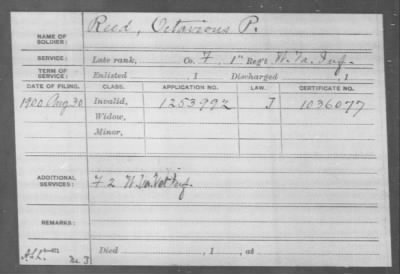 NAME OF SOLDIER: Reed, Octavious P.
SERVICE: Late rank, Co. F, 1" Reg't W. Va. Inf.
TERM OF SERVICE: Enlisted , 1 Discharged , 1
DATE OF FILING. CLASS. APPLICATION NO. LAW. CERTIFICATE NO.
1900 Aug 30 Invalid, 1253992 J 1036077
Widow,
Minor,
ADDITIONAL SERVICES: F 2 W. Va. Vet Inf.
REMARKS:
Died , 1 , at